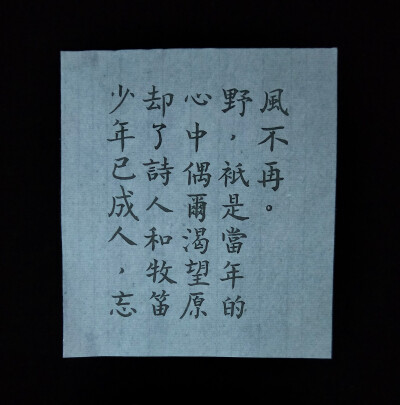 少年已成人，忘
却了詩人和牧笛
心中偶爾渴望原
野，祇是當年的
風不再。